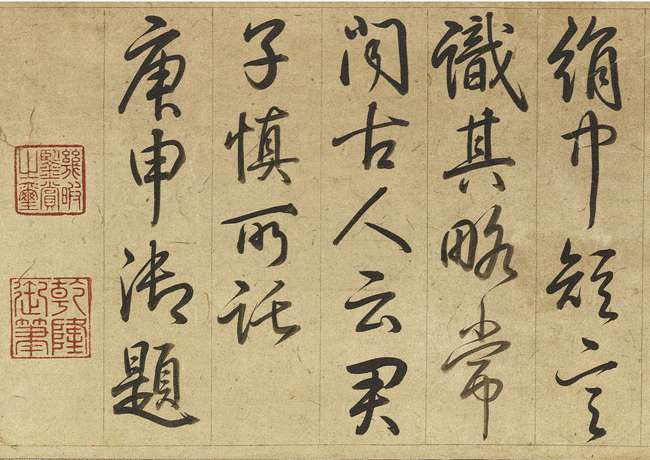 絹巾短言
識其略常
聞古人云君
子慎所託
庚申御題
幾暇鑒賞之璽
乾隆御筆